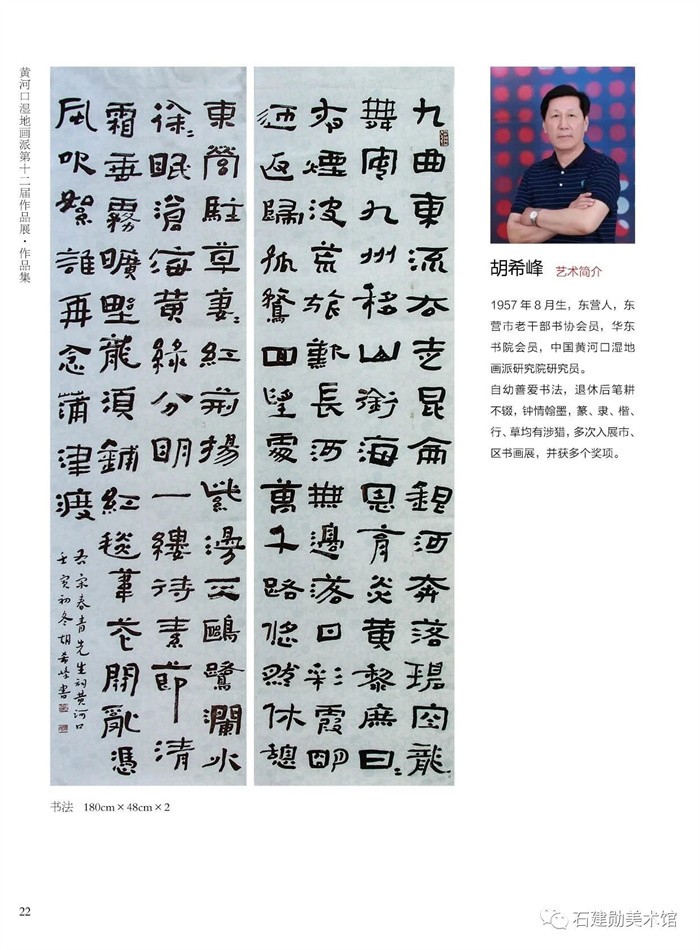 黄河口湿地画派第十二届作品展·作品集
九曲東流走昆侖河奔落碧空龍
舞九州移山銜海恩育炎黃黎庶日々
有煙波荒旅歎長河無邊落日彩霞明
返歸孤鶩回望處萬千路悠然休憩
東營駐草萋々紅荊揚紫漫天鷗鷺瀾水
徐々眠滄海黃綠分明一縷待素節清
霜垂霧曠野龍須鋪紅毯葦花開亂憑
風吹絮誰再念蒲津渡
宋春青先生詞黃河口
壬寅初冬胡希峰書
书法 180cm×48cm×2
胡希峰 艺术简介
1957 年 8 月生，东营人，东
营市老干部书协会员，华东
书院会员，中国黄河口湿地
画派研究院研究员。
自幼善爱书法，退休后笔耕
不辍，钟情翰墨，篆、隶、楷、
行、草均有涉猎，多次入展市、
区书画展，并获多个奖项。
22
石建勋美术馆